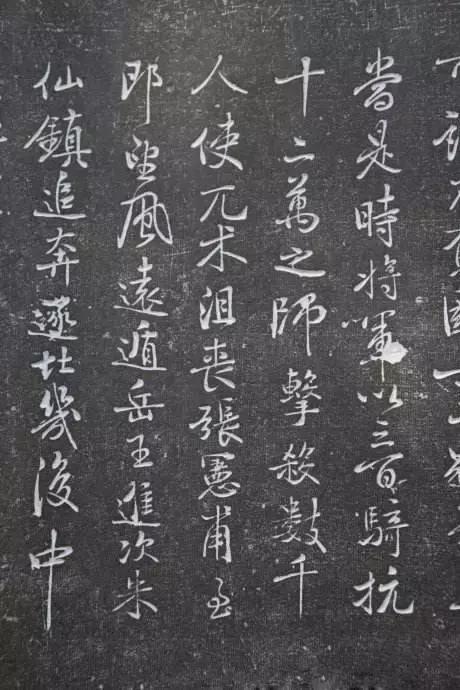 當是時將軍以三百騎抗
十二萬之師擊殺數千
人使兀术沮喪張憲甫至
即望風遠遁岳王進次朱
仙鎮追奔逐北幾復中